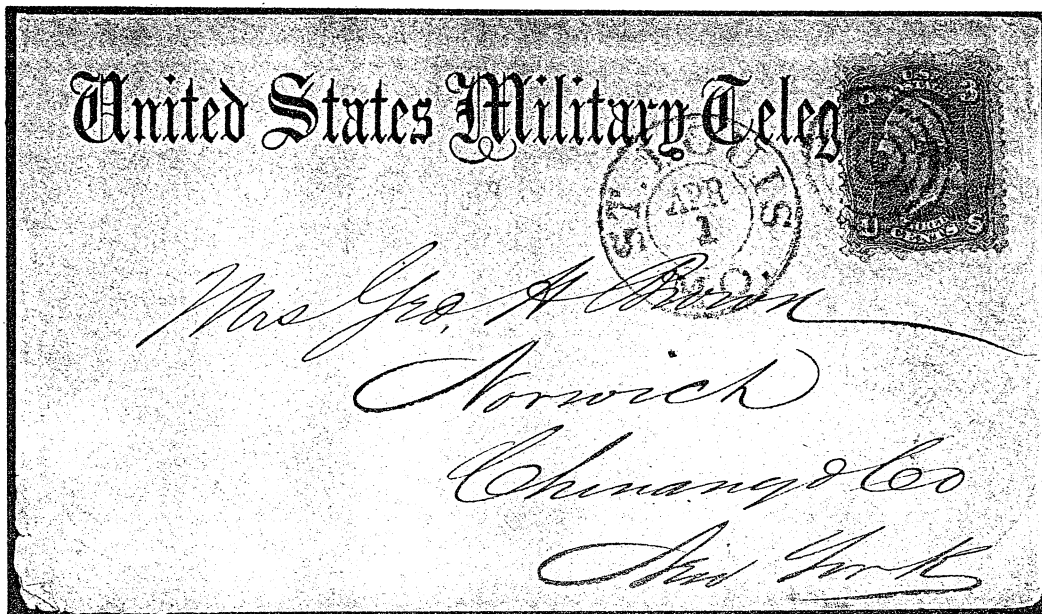 United States Military Teleg
ST. LOUIS
APR
1
MO.
U.S.
3
U S
THREE
CENTS
Mrs Geo, H
Norwich
Chenango Co
New York